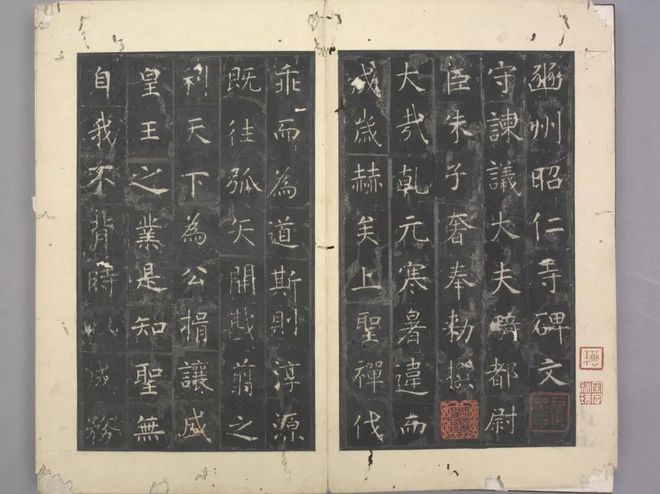 豳州昭仁寺碑文
守諫議大夫騎都尉
臣朱子奢奉勅撰
大哉乾元寒暑違而
成歲赫矣上聖禪伐
乖而為道斯則淳源
既往弧矢開戡翦之
利天下為公揖讓成
皇王之業是知聖無
自我不背時以成務